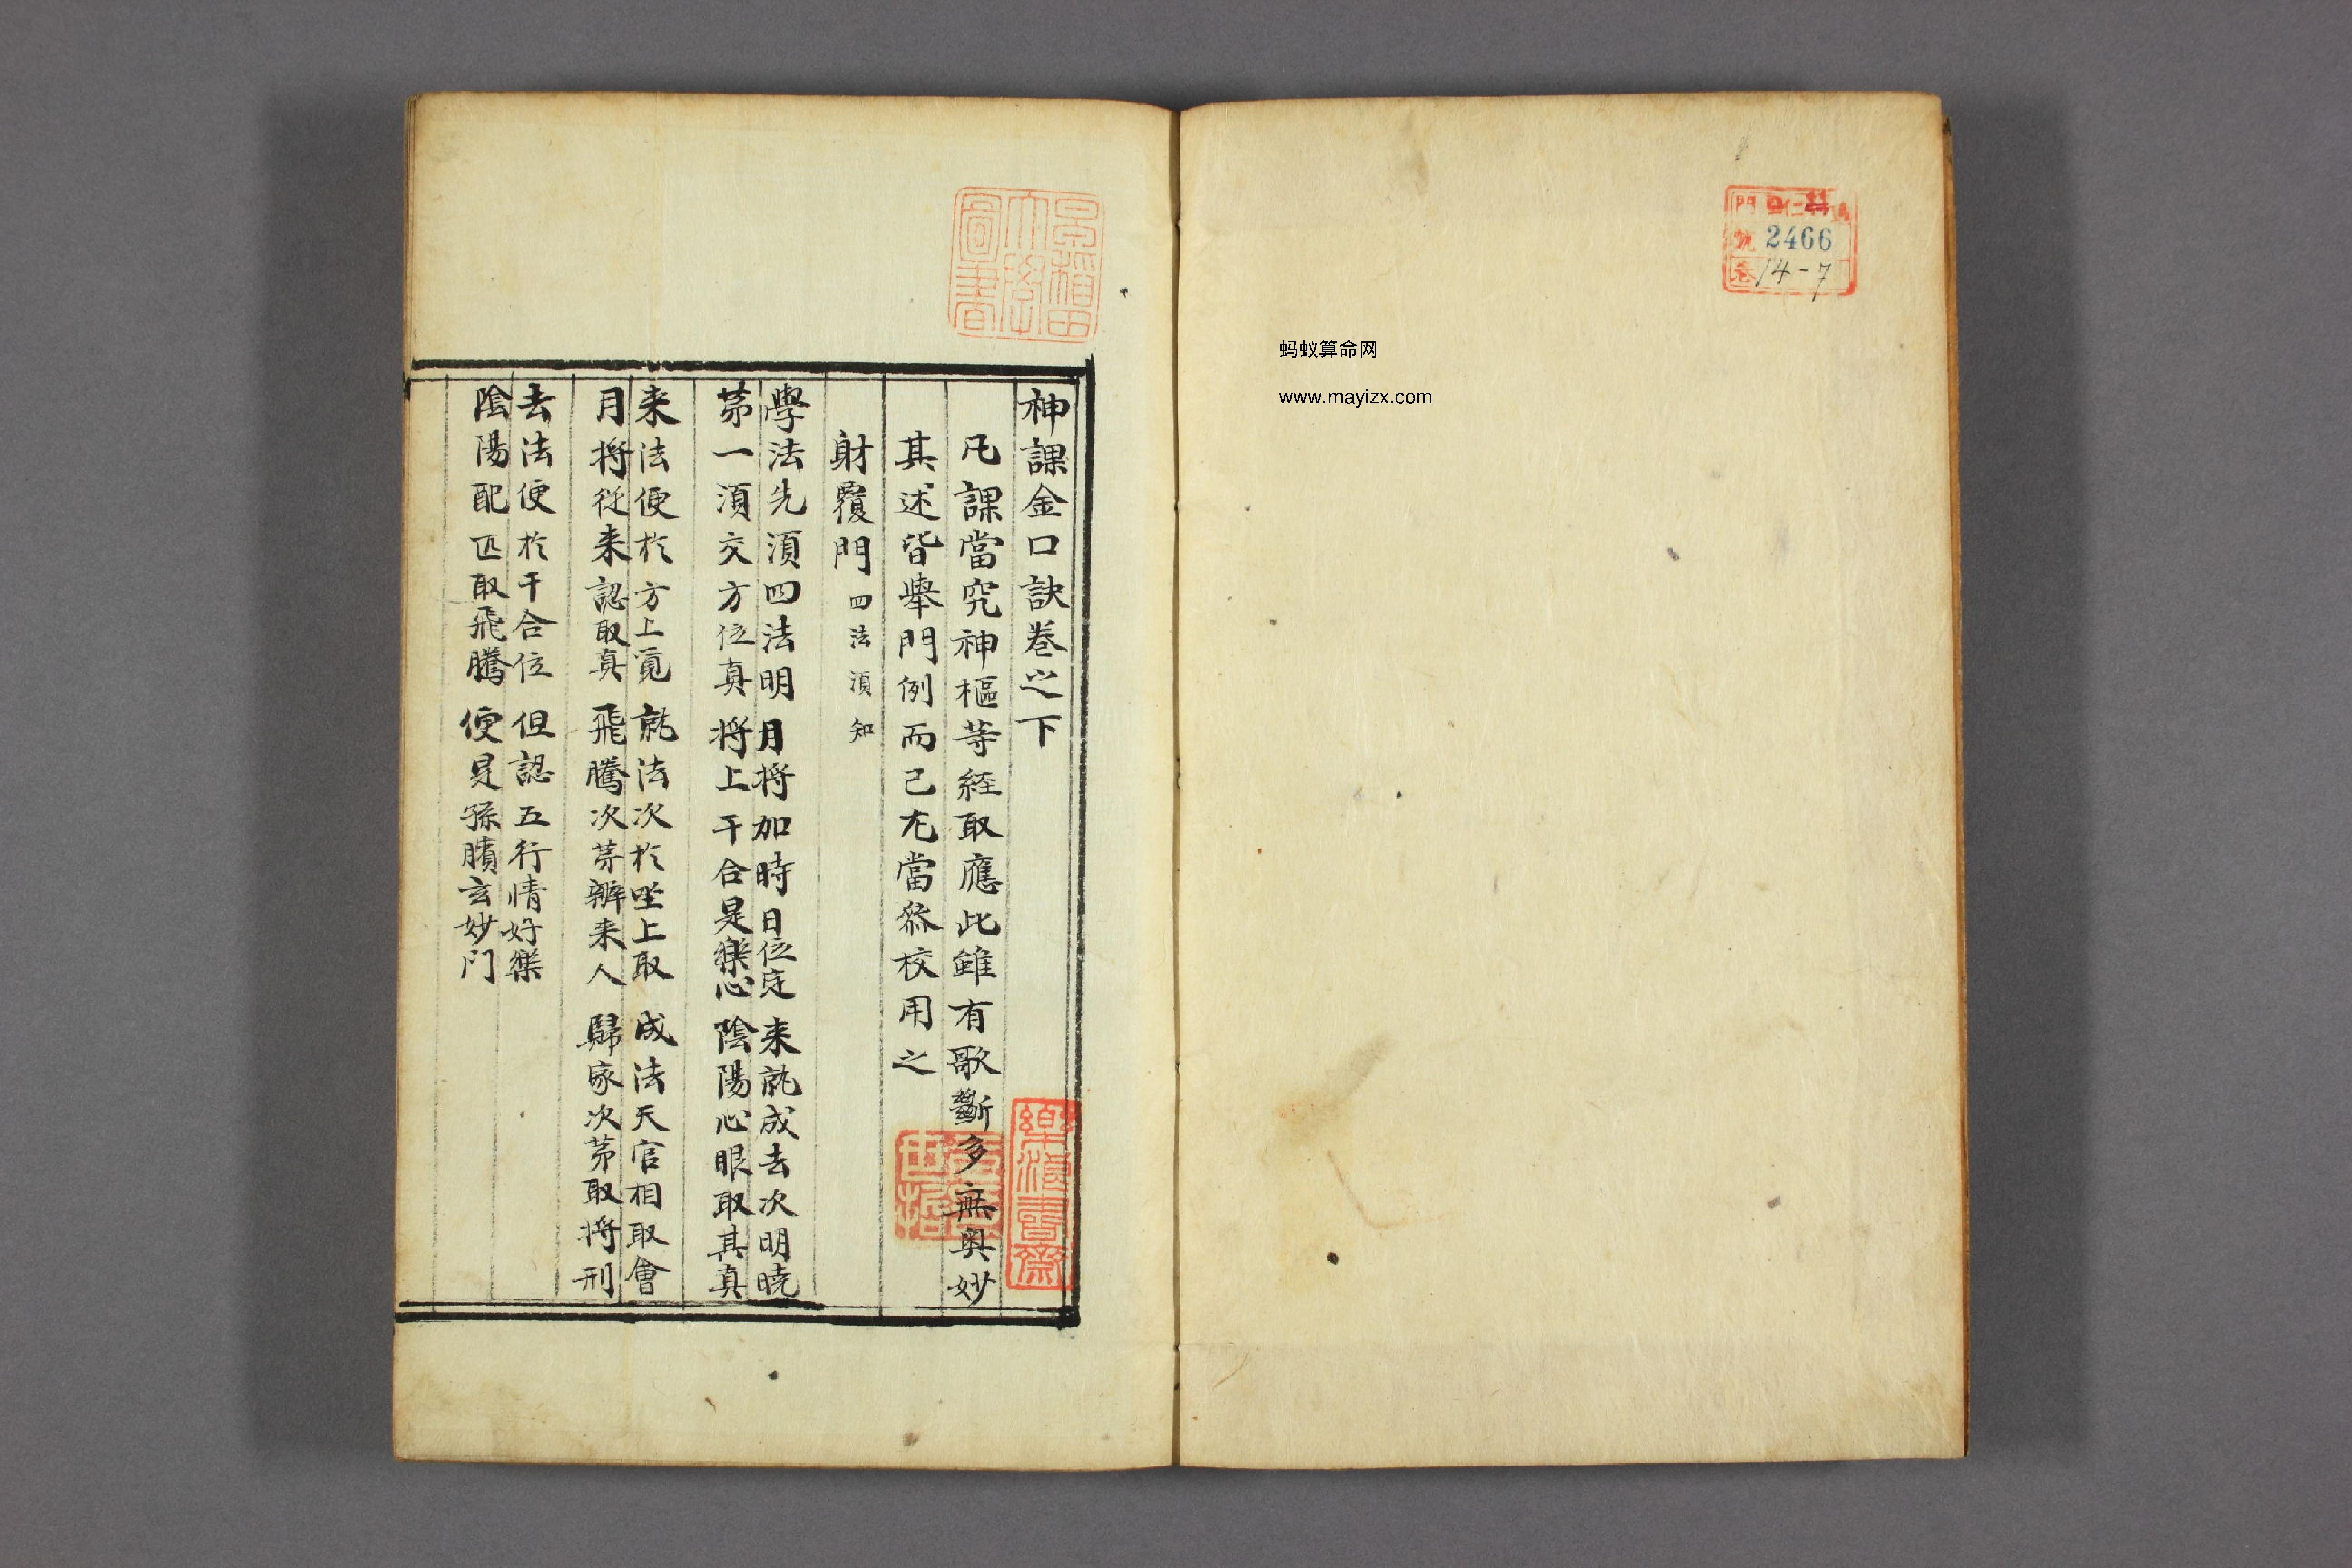 神課金口訣巻之下
凡課當究神樞等経取應此雖有歌斷多無奥妙
其述皆舉門例而已尤當叅校用之
射覆門 四法須知
學法先須四法明 月将加時日位定 来就成去次明暁
苐一須交方位真 将上干合是樂心 陰陽心眼取其真
来法便扵方上覓 就法次扵坐上取 成法天官相取會
月將従来認取真 飛騰次苐辨来人 歸家次苐取将刑
去法便扵干合位 但認五行情好樂
陰陽配匹取飛騰 便是孫臏玄妙门
早稲田
大學
圖書
樂浪書齋
門
號 2466
卷 14-7
蚂蚁算命网
www.mayizx.com